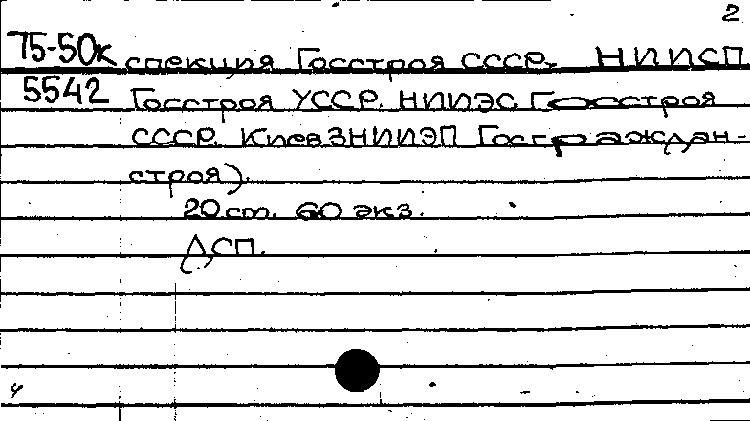 2
75-50к спекция Госстроя СССР, НИИСП
5542 Госстроя УССР. НИИЭС Госстроя
СССР. КиевЗНИИЭП Госграждан-
строя).
20 см. 60 экз.
ДСП.